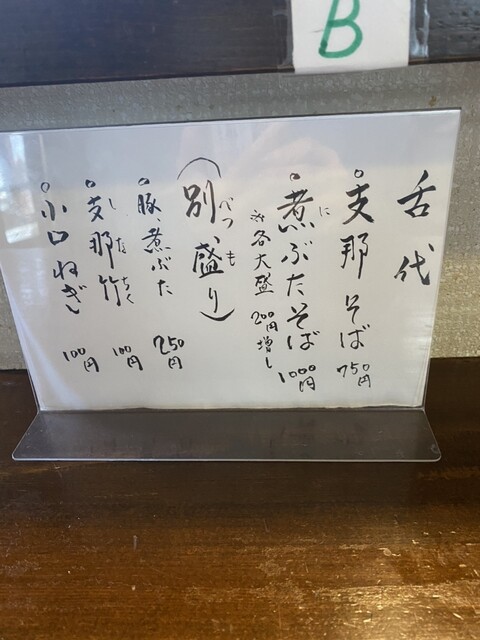 B
舌代
○支那そば 750円
○煮ぶたそば 1000円
に
※各大盛 200円増し
(別盛り)
べつも
○豚、煮ぶた 250円
○支那竹 100円
しなちく
○小口ねぎ 100円